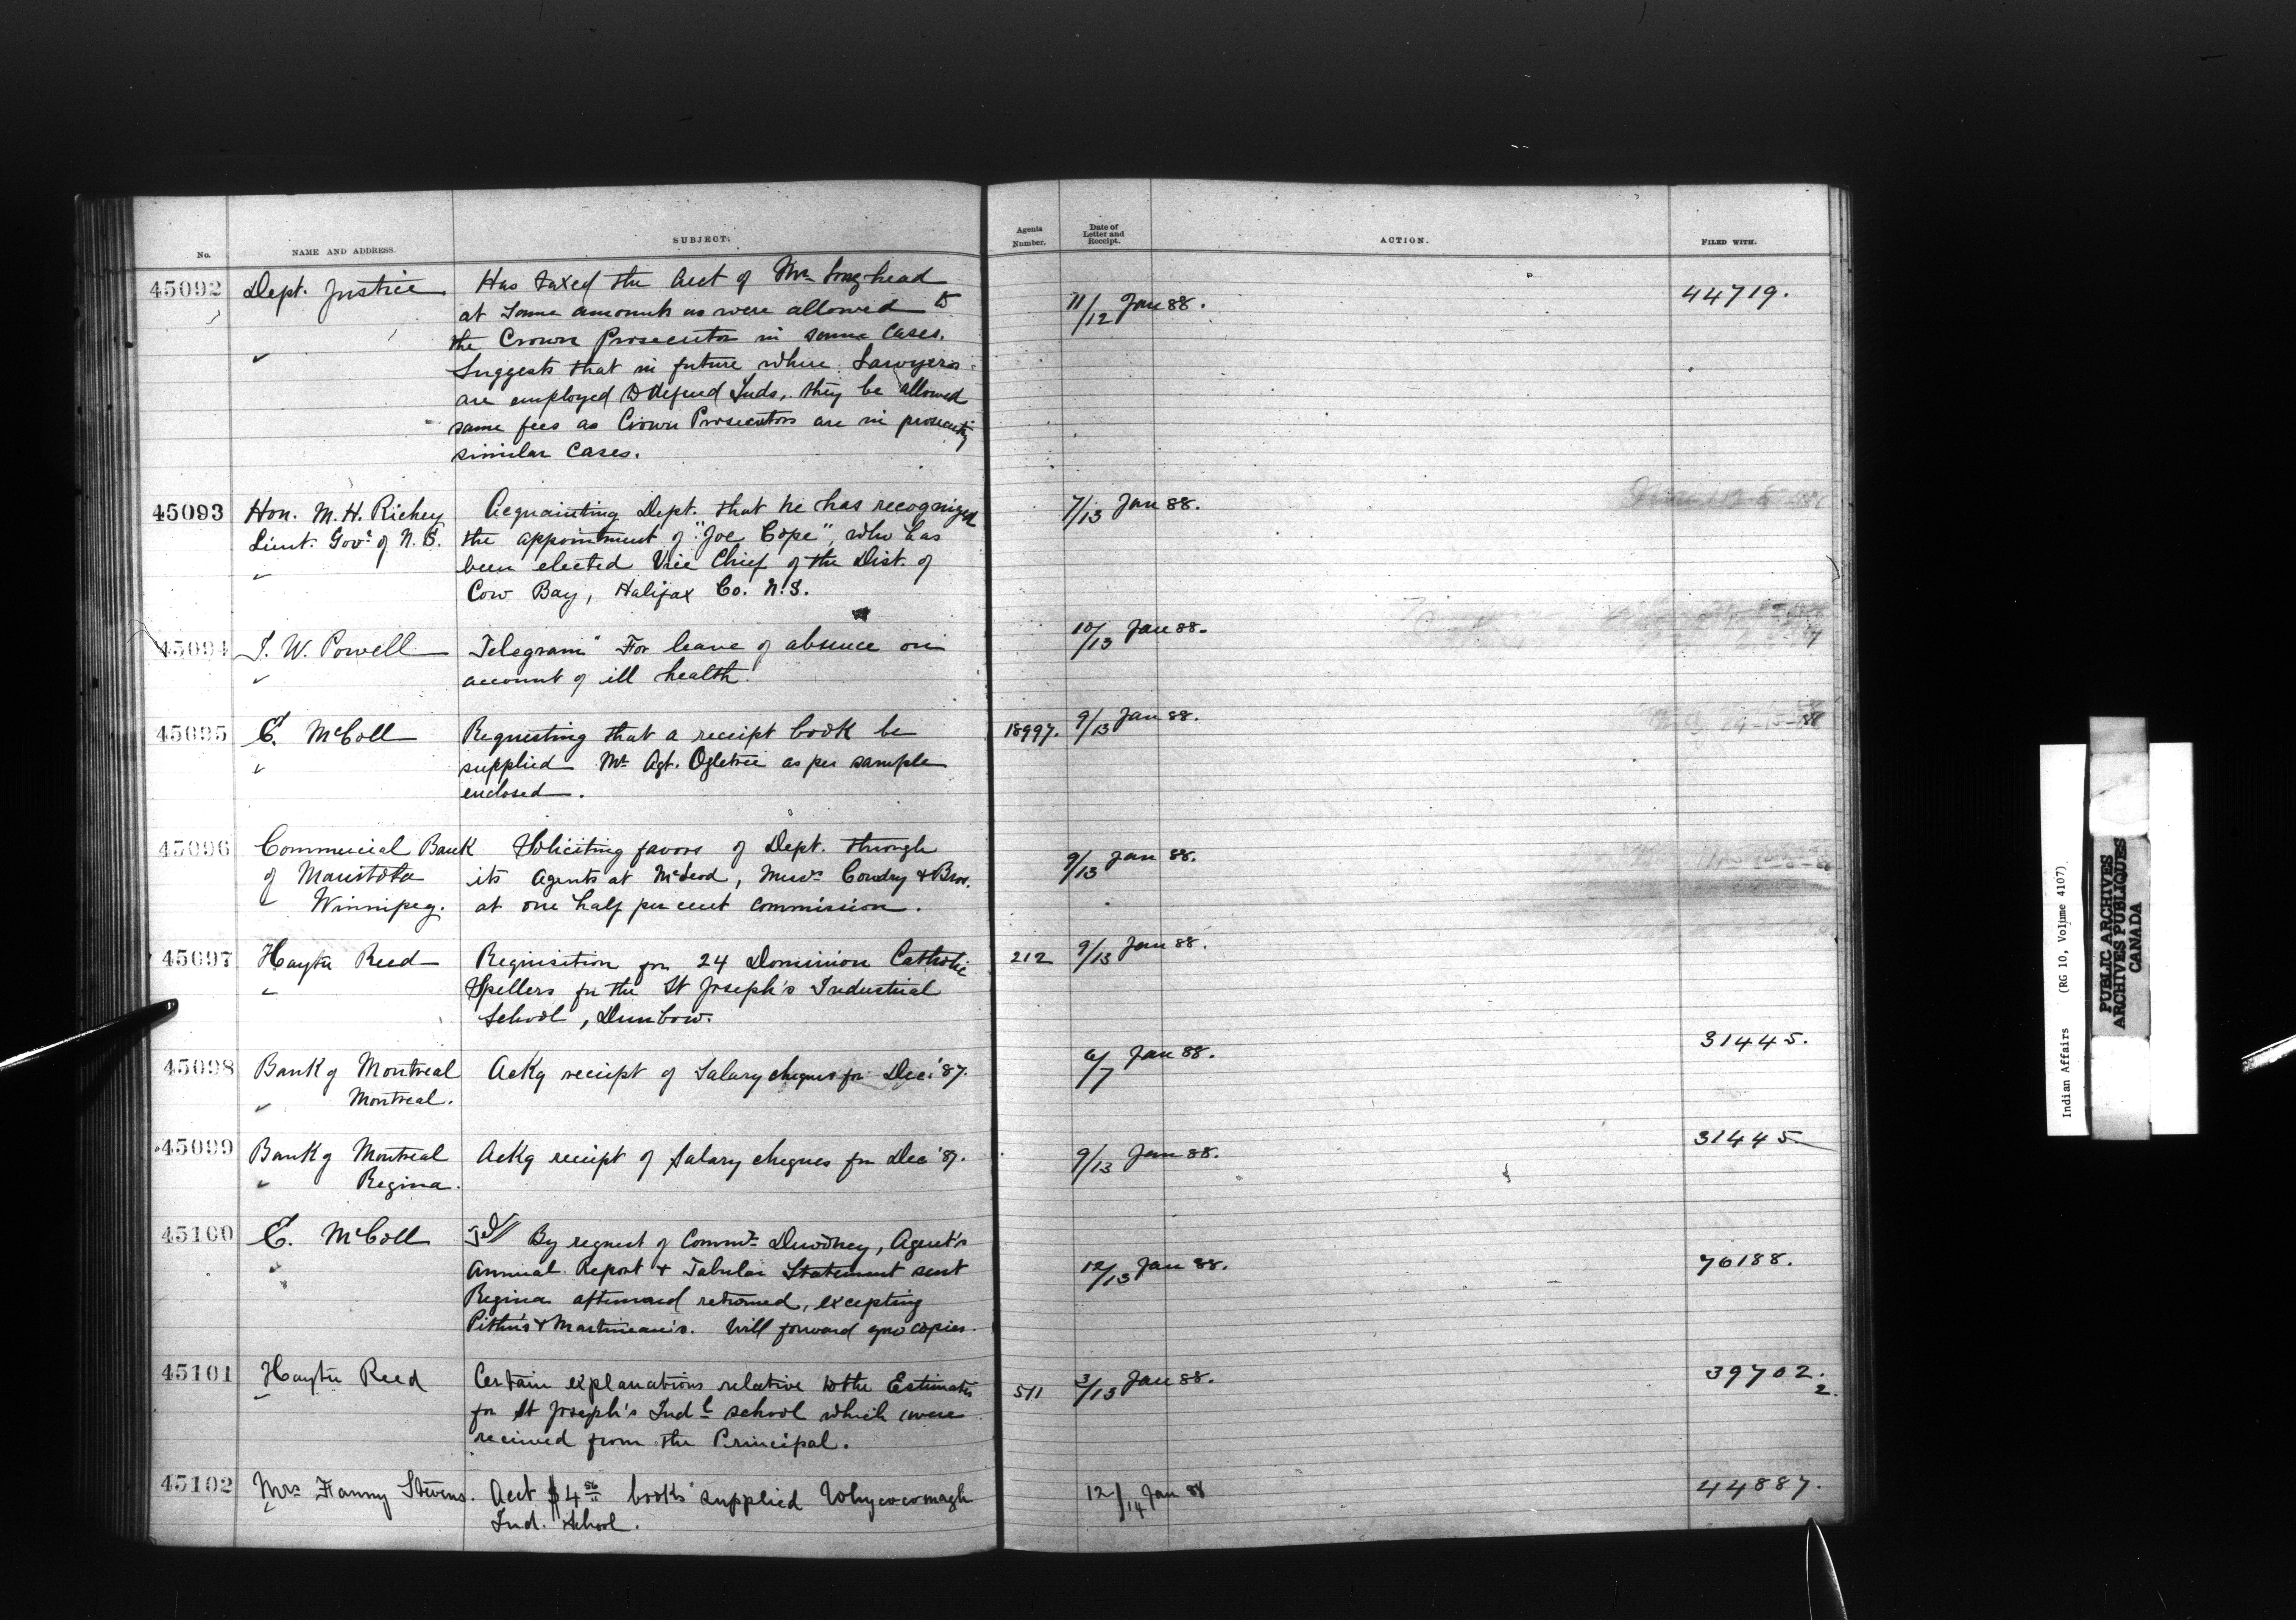 No.
NAME AND ADDRESS.
SUBJECT.
Agents Number.
Date of Letter and Receipt.
ACTION.
FILED WITH.
45092 Dept. Justice Has taxed the Acct of Mr Longhead
at same amounts as were allowed to
the Crown Prosecutor in same cases.
Suggests that in future where Lawyers
are employed to defend Inds, they be allowed
same fees as Crown Prosecutors are in prosecuting
similar cases.
11/12 Jan 88.
44719.
45093 Hon. M. H. Richey Acquainting Dept. that he has recognized
Lieut. Govr of N. S. the appointment of "Joe Cope", who has
been elected Vice Chief of the Dist. of
Cow Bay, Halifax Co. N.S.
7/13 Jan 88.
45094 I. W. Powell Telegram" For leave of absence on
account of ill health.
10/13 Jan 88.
45095 E. McColl Requesting that a receipt book be
supplied Mr Agt. Ogletree as per sample
enclosed.
18997. 9/13 Jan 88.
45096 Commercial Bank Soliciting favors of Dept. through
of Manitoba its Agents at McLeod, Messrs Cowdry & Bros.
Winnipeg. at one half per cent commission.
9/13 Jan 88.
45097 Hayter Reed Requisition for 24 Dominion Catholic
Spellers for the St Joseph's Industrial
School, Dunbow.
212 9/13 Jan 88.
45098 Bank of Montreal Ackg receipt of Salary cheques for Dec. '87.
Montreal.
6/7 Jan 88.
31445.
45099 Bank of Montreal Ackg receipt of Salary cheques for Dec '87.
Regina.
9/13 Jan 88.
31445
45100 E. McColl Tel// By request of Commr Dewdney, Agent's
Annual Report & Tabular Statement sent
Regina afterward returned, excepting
Pither's & Martineau's. Will forward copies.
12/13 Jan 88.
76188.
45101 Hayter Reed Certain explanations relative to the Estimates
for St Joseph's Indl school which were
received from the Principal.
511 3/13 Jan 88.
39702.
2.
45102 Mrs Fanny Stevens. Acct $4 56 books supplied Whycocomagh
Ind. School.
12/14 Jan 88
44887.
Indian Affairs (RG 10, Volume 4107)
PUBLIC ARCHIVES
ARCHIVES PUBLIQUES
CANADA